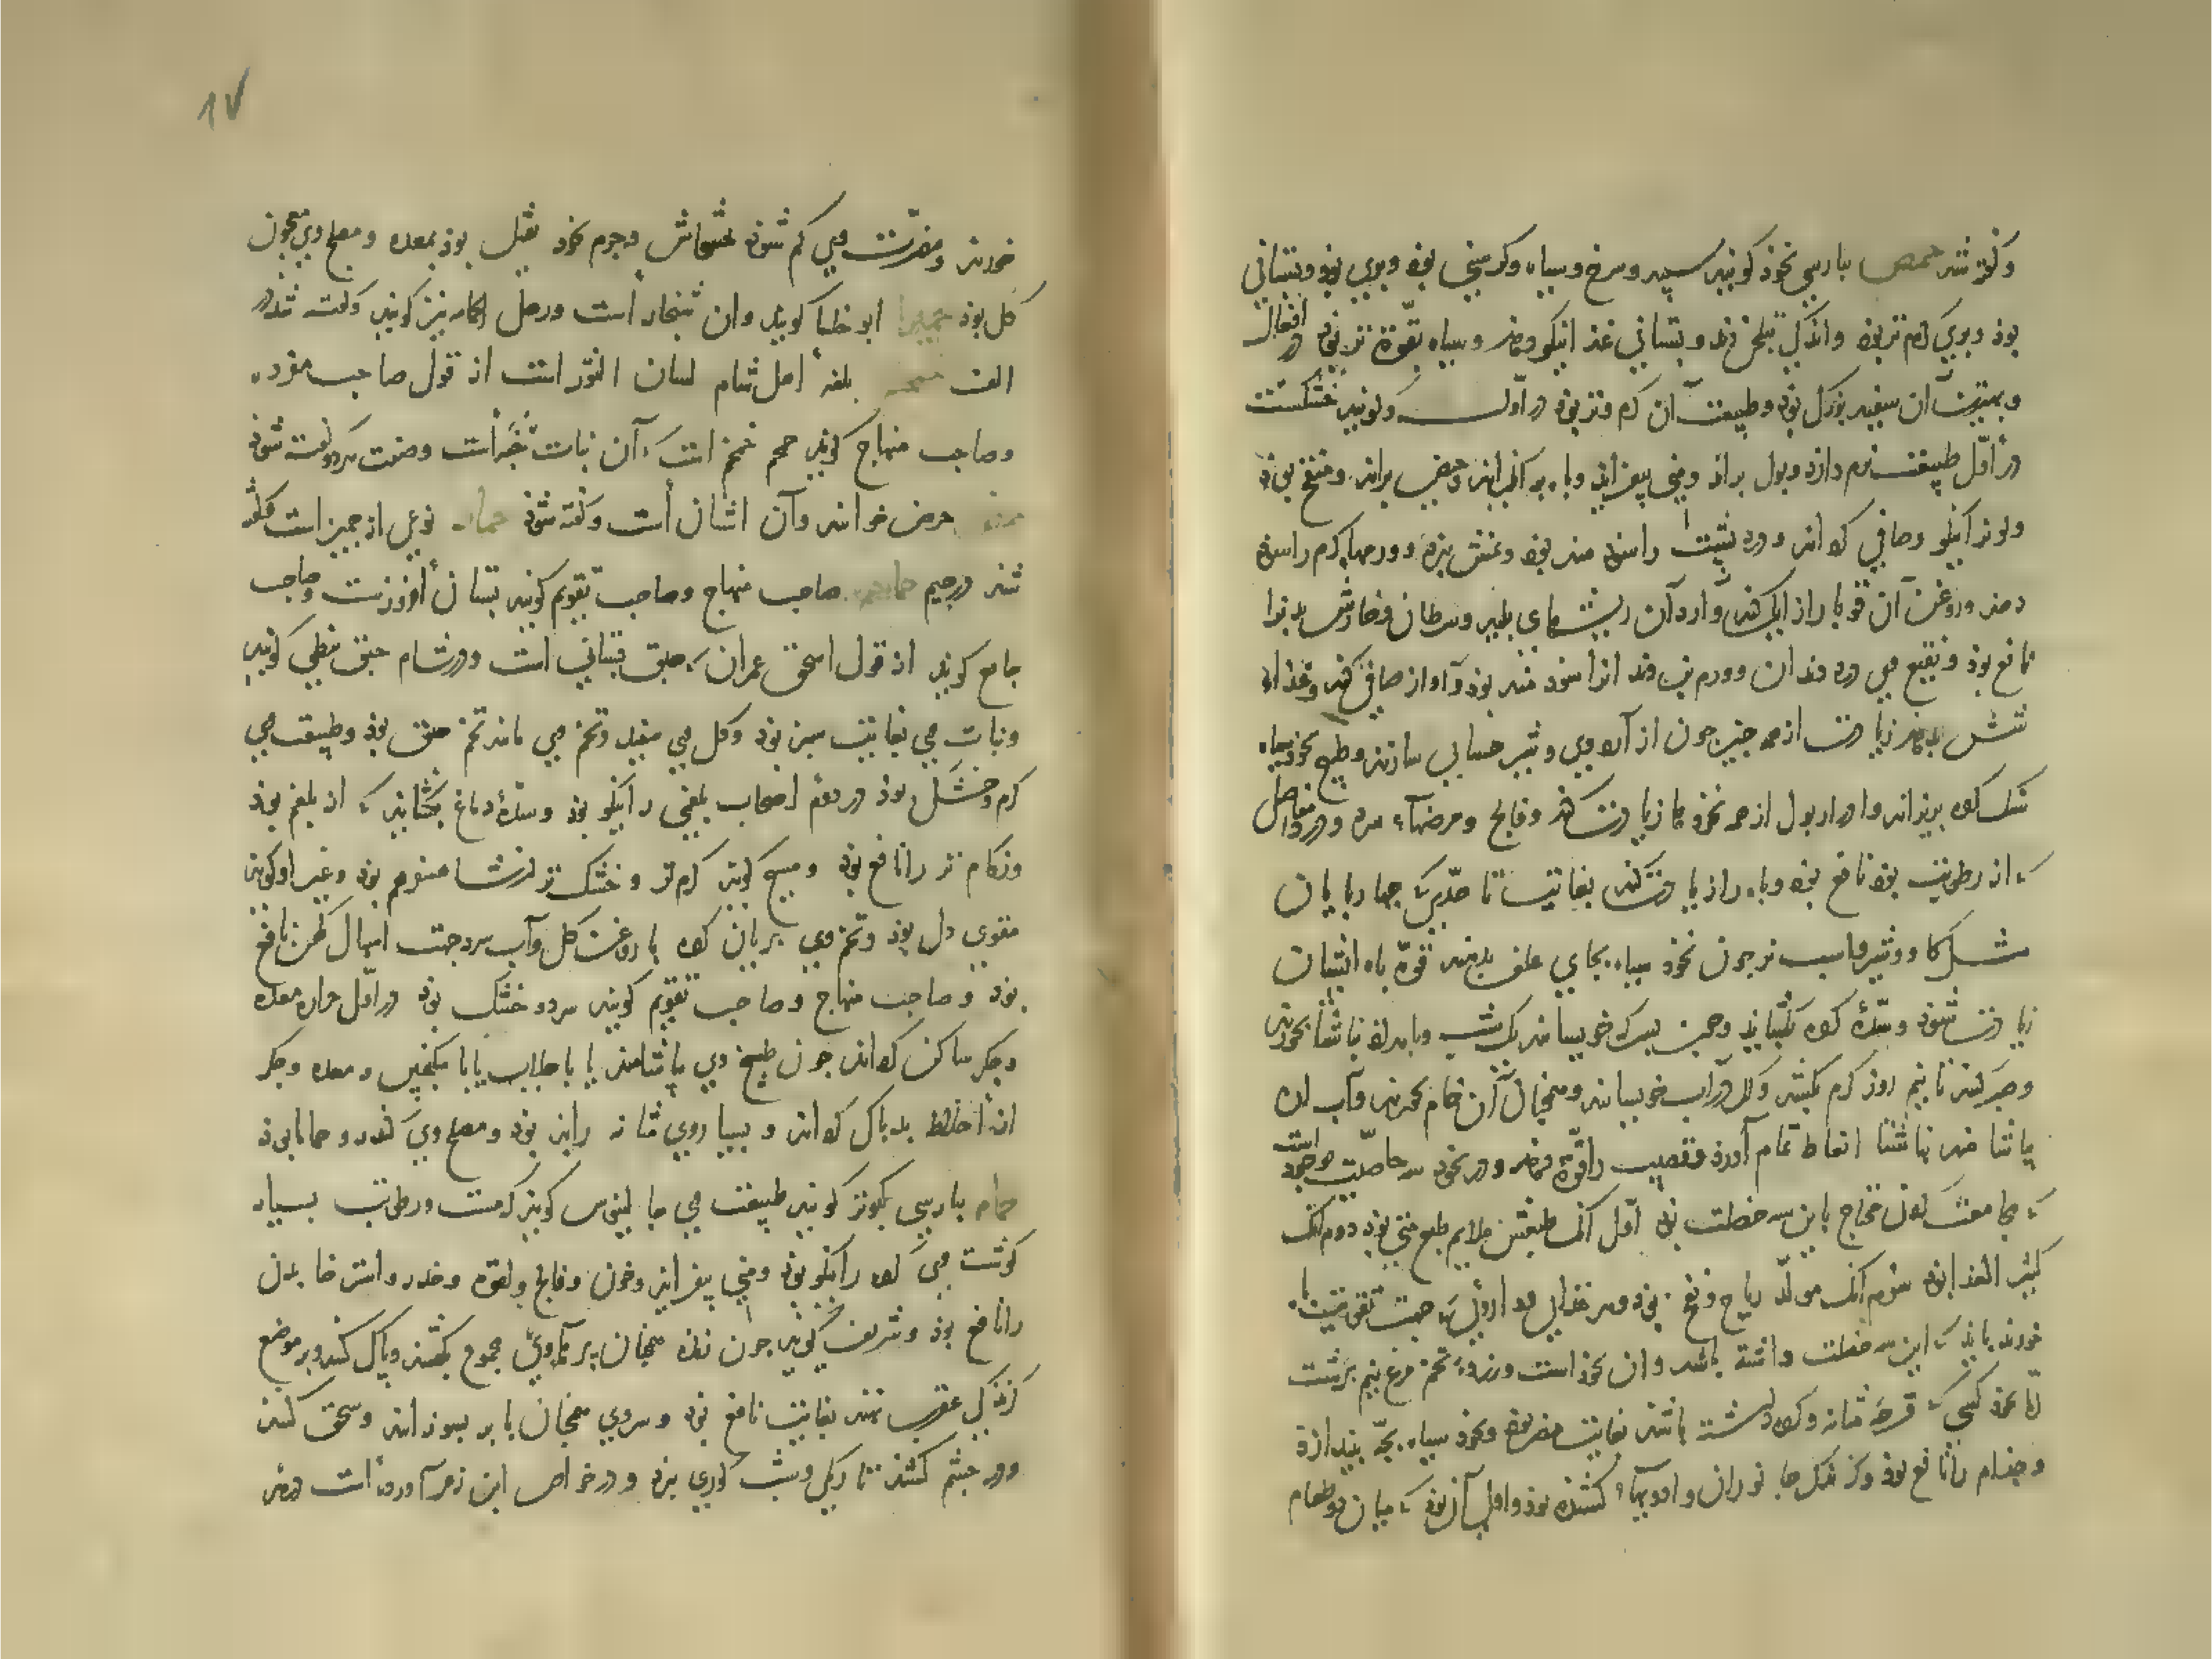 وگفته شد حمص بپارسی نخوذ گویند سپید و سرخ و سیاه و کرسنی بوذ و بری بوذ و بستانی
بوذ و بری گرم تر بوذ و اندکی تلخی زند و بستانی غذا نیکو دهد و سیاه بقوّة تر بوذ در افعال
و بهترین آن سفید بزرگ بوذ و طبیعت آن گرم و تر بوذ در اوّل و گویند خشکست
در اوّل طبیعت نرم دارد و بول براند و منی بیفزاید و باه برانگیزاند و حیض براند و منفخ بوذ
و لون را نیکو و صافی گرداند و درد پشت را سود مند بوذ و ورمهاء گرم را سود
دهد و روغن آن قوبا را زایل کند و آرد آن ریشهای پلید و سرطان و خارش بدن را
نافع بوذ و نقیع وی درد دندان و ورم بن دندان را سود مند بوذ و آواز صافی کند و غذاء
شش بدهد زیادت از همه چیز چون از آرد وی و شیر حسایی سازند و طبیخ نخوذ سیاه
سنگ گرده بریزاند و ادرار بول از همه نخودها زیادت کند و فالج و مرضهاء سرد و درد مفاصل
که از رطوبت بوذ نافع بوذ و باه را زیادت کند بغایت تا حدّی که چهارپایان
مثل گاو و شیر و اسب نر چون نخوذ سیاه بجای علف بدهند قوّة باه ایشان
زیادت شوذ و سدّهٔ گرده بگشاید و چون بسرکه خویسانند یک شب و بامداد ناشتا بخورند
و صبر کنند تا نیم روز کرم بکشد و اگر در آب خویسانند و همچنان آن خام بخورند و آب آن
بیاشامند ناشتا انعاظ تمام آورد و قضیب را قوّة دهد و در نخوذ سه خاصیّت موجود است
که مجامعت کردن محتاج باین سه خصلت بوذ اوّل آنک طبعش ملایم طبع منی بوذ دوم آنک
کثیر الغذا بوذ سوم آنک مولّد ریاح و نفخ بوذ و هر غذایی و دارویی که جهت تقویت باه
خورند باید که این سه خصلت داشته باشد و آن نخوذ است و زردهٔ تخم مرغ نیم برشت
امّا نخوذ کسی که قرحهٔ مثانه و گرده داشته باشد بغایت مضر بوذ و نخوذ سیاه بچّه بیندازد
و جذام را نافع بوذ و گزندگی جانوران و ادویهاء کشنده بوذ و اولی آن بوذ که میان دو طعام
۱۷
خورند و مضرّت وی کم شوذ بخشخاش و جرم نخوذ ثقیل بوذ بمعده و مصلح وی معجون
گل بوذ حمیرا ابو خلسا گویند و آن شنجار است و رجل الحمامه نیز گویند و گفته شد در
الف حمحم بلغهٔ اهل شام لسان الثور است از قول صاحب مفرده
و صاحب منهاج گوید حمحم خمخم است که آن نبات خبّه است و صفت هر دو گفته شوذ
حمض حرض خوانند و آن اشنان است و گفته شوذ حماط نوعی از جمیز است گفته
شد در جیم حماحم صاحب منهاج و صاحب تقویم گویند بستان افروزست و صاحب
جامع گوید از قول اسحق عمران که حبق بستانی است و در شام حبق نبطی گویند
و نبات وی بغایت سبز بوذ و گل وی سفید و تخم وی مانند تخم حبق بوذ و طبیعت وی
گرم و خشک بوذ در دوّم اصحاب بلغمی را نیکو بوذ و سدّهٔ دماغ بگشاید که از بلغم بوذ
و زکام تر را نافع بوذ و مسیح گوید گرم تر و خشک تر از شاهسفرم بوذ و غیر او گویند
مقوی دل بوذ و تخم وی بریان کرده با روغن گل و آب سرد جهت اسهال کهن نافع
بوذ و صاحب منهاج و صاحب تقویم گویند سرد و خشک بوذ در اوّل حرارة معده
و جگر ساکن گرداند چون طبیخ وی بیاشامند یا با جلاب یا با سکنجبین و معده و جگر
از اخلاط بد پاک گرداند و بسیار وی مثانه را بد بوذ و مصلح وی کندر و حماما بوذ
حمام بپارسی کبوتر گویند طبیعت وی جالینوس گوید گرمست و رطوبت بسیار
گوشت وی گرده را نیکو بوذ و منی بیفزاید و خون و فالج و لقوه و خدر و استرخاء بدن
را نافع بوذ و شریف گوید چون زنده همچنان پر تمام وی مجموع بکشند و پاک کنند و بر موضع
گزندگی عقرب نهند بغایت نافع بوذ و سر وی همچنان با پر بسوزانند و سحق کنند
و در چشم کشند تاریکی و شب کوری ببرد و در خواص ابن زهر آورده است